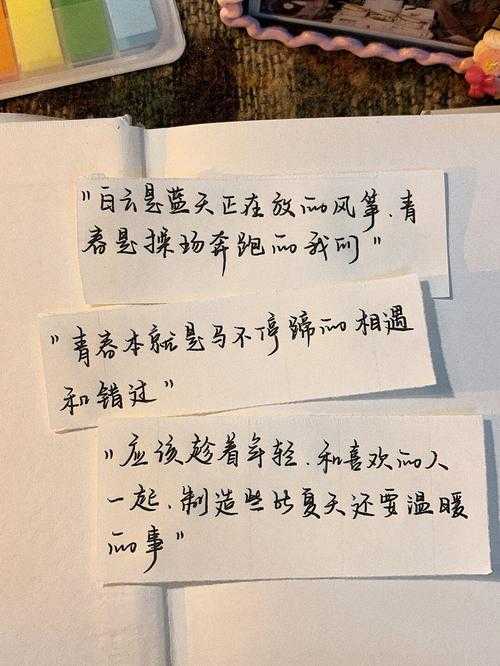 "白云是蓝天正在放的风筝.青
春是操场奔跑的我们"
"青春本就是马不停蹄的相遇
和错过"
"应该趁着年轻.和喜欢的人
一起.制造些比夏天还要温暖
的事"